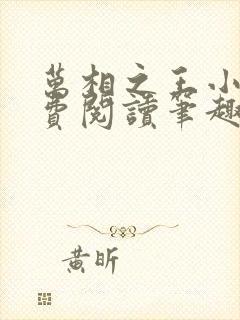 萬相之王小
費閱讀筆趣
黃昕